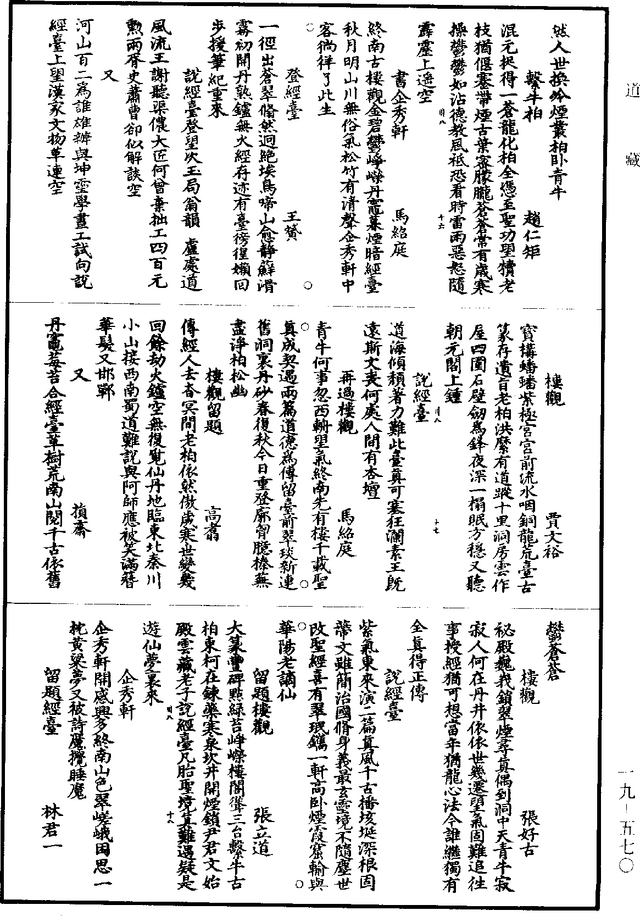 道藏
然人世換吟煙叢柏卧青牛
繫牛柏 趙仁矩
混元挽得一蒼龍化柏全憑至聖功塑犢老
枝猶偃蹇帶煙古葉密朦朧蒼蒼常有歲寒
操鬱鬱如沾德教風祗恐看時雷雨惡怒隨
霹靂上遥空
書企秀軒 馬紹庭
終南古樓觀金碧鬱崢嶸丹竈暮煙暗經臺
秋月明山川無俗氣松竹有清聲企秀軒中
客徜徉了此生
登經臺 王贊
一徑出蒼翠翛然迥絶埃鳥啼山愈静蘚滑
霧初開丹熟鑪無火經存迹有臺徬徨嬾回
步授筆紀重來
說經臺登望次玉局翁韻 盧處道
風流王謝聽渠儂大匠何曾棄拙工四百元
勲兩胥史蕭曹却似解談空
又
河山百二爲誰雄辦與坤靈學畫工試向說
經臺上望漢家文物草連空
樓觀 賈文裕
寳構蟠蟠紫極宮宮前流水咽銅龍荒臺古
篆存遺旨老柏洪縻有道蹤十里洞房雲作
屋四圍石壁劒爲鋒夜深一榻眠方穩又聽
朝元閣上鍾
說經臺
道海傾頽著力難此臺真可塞狂瀾素王旣
遠斯文喪何處人間有杏壇
再過樓觀 馬紹庭
青牛何事忽西轅望氣終南先有樓千載聖
真成契遇兩篇道德爲傳留臺前翠琰新連
舊洞裏丹砂春復秋今日重登廓胷臆榛蕪
盡淨柏松幽
樓觀留題 高翥
傳經人去杳冥間老柏依然傲歲寒世變幾
回餘劫火鑪空無復覓仙丹地臨東北秦川
小山接西南蜀道難說與阿師應被笑滿簪
華髮又邯鄲
又 損齋
丹竈莓苔合經臺草樹荒南山閱千古依舊
鬱蒼蒼
樓觀 張好古
秘殿巍峩鎖翠煙尋真偶到洞中天青牛寂
寂人何在丹井依依世幾遷望氣固難追往
事授經猶可想當年猶龍心法今誰繼獨有
全真得正傳
說經臺
紫氣東來演二篇真風千古播垓埏深根固
蔕文雖簡治國脩身義最玄靈境不隨塵世
改聖經喜有翠珉鐫一軒高卧煙霞窟輸與
華陽老謫仙
留題樓觀 張立道
大篆豐碑點緑苔崢嶸樓閣聳三台繫牛古
柏東柯在鍊藥寒泉坎井開煙鎖尹君文始
殿雲藏老子說經臺凡胎聖境真難遇疑是
遊仙夢裏來
企秀軒
企秀軒開感興多終南山色翠嵯峨因思一
枕黄粱夢又被詩魔攪睡魔
留題經臺 林君一
一九–五七〇